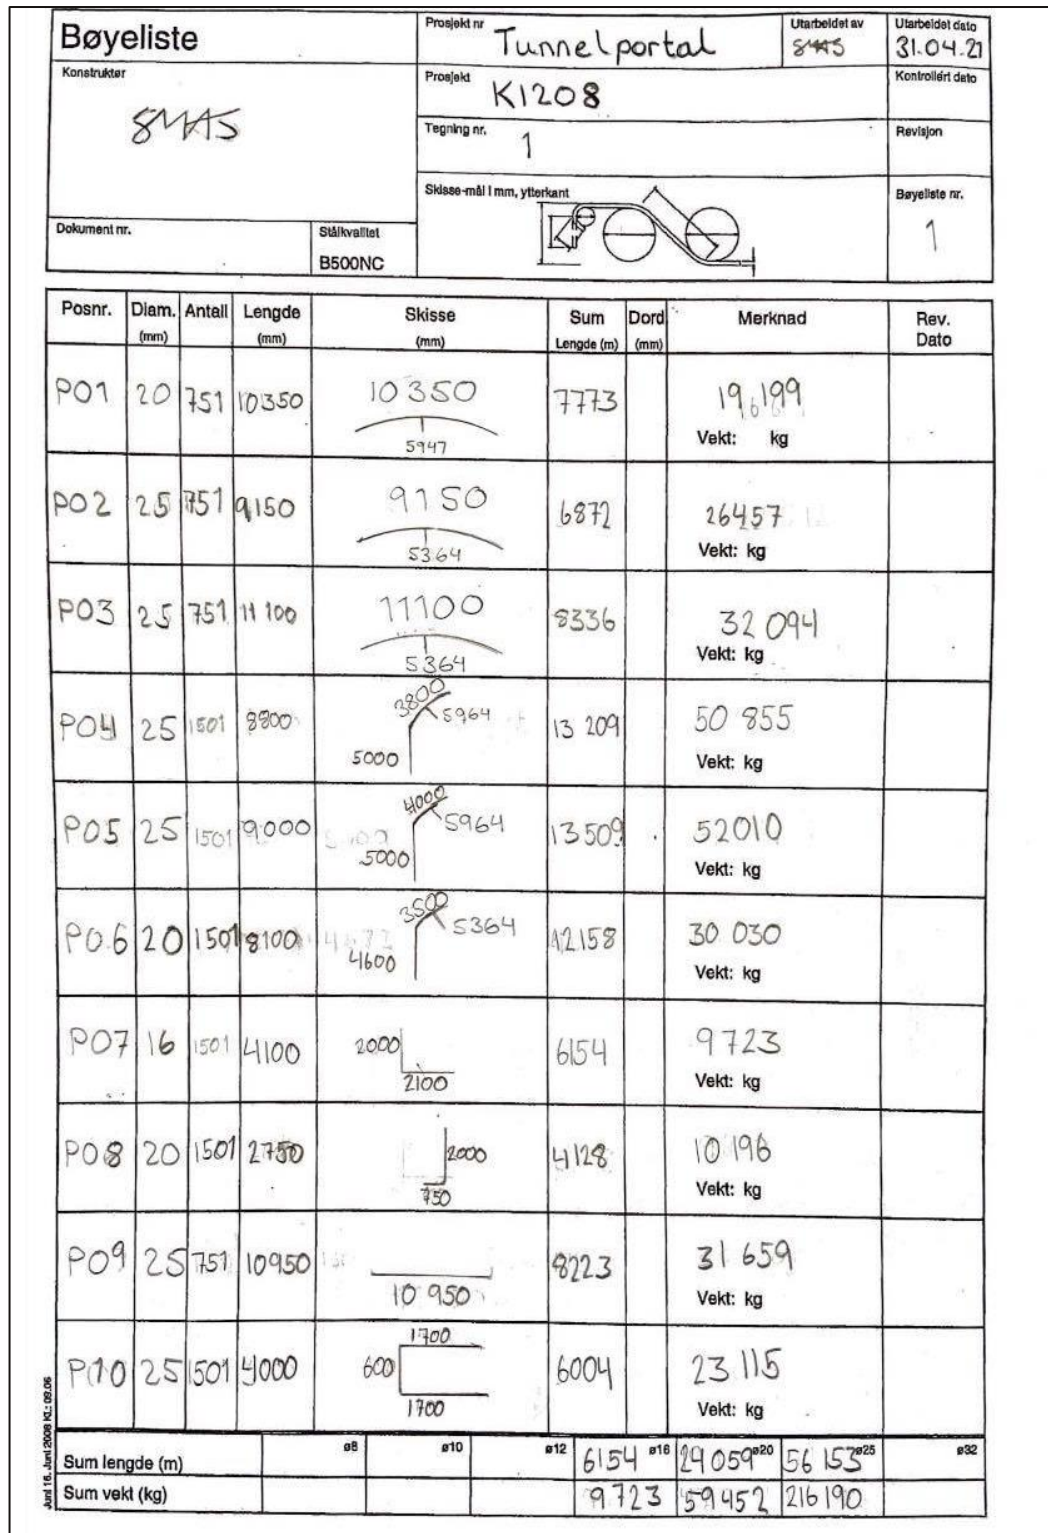 Bøyeliste
Prosjekt nr
Tunnelportal
Utarbeidet av
SMAS
Utarbeidet dato
31.04.21
Konstruktør
SMAS
Prosjekt
K1208
Kontrollért dato
Tegning nr.
1
Revisjon
Skisse-mål i mm, ytterkant
Bøyeliste nr.
1
Dokument nr.
Stålkvalitet
B500NC
Posnr. Diam. (mm) Antall Lengde (mm) Skisse (mm) Sum Lengde (m) Dord (mm) Merknad Rev. Dato
PO1 20 751 10350 10350 5947 7773 19,199
Vekt: kg
PO2 25 751 9150 9150 5364 6872 26457
Vekt: kg
PO3 25 751 11100 11100 5364 8336 32 094
Vekt: kg
PO4 25 1501 8800 3800 5964 5000 13 209 50 855
Vekt: kg
PO5 25 1501 9000 4000 5964 5000 13509 52010
Vekt: kg
PO.6 20 1501 8100 3500 5364 4600 12158 30 030
Vekt: kg
PO7 16 1501 4100 2000 2100 6154 9723
Vekt: kg
PO8 20 1501 2750 2000 750 4128 10 196
Vekt: kg
PO9 25 751 10950 10 950 8223 31 659
Vekt: kg
P10 25 1501 4000 1700 600 1700 6004 23 115
Vekt: kg
Sum lengde (m) ø8 ø10 ø12 6154 ø16 29 059 ø20 56 153 ø25 ø32
Sum vekt (kg) 9 723 59 452 216 190
Juni 16. Juni 2008 Kl.: 09.06